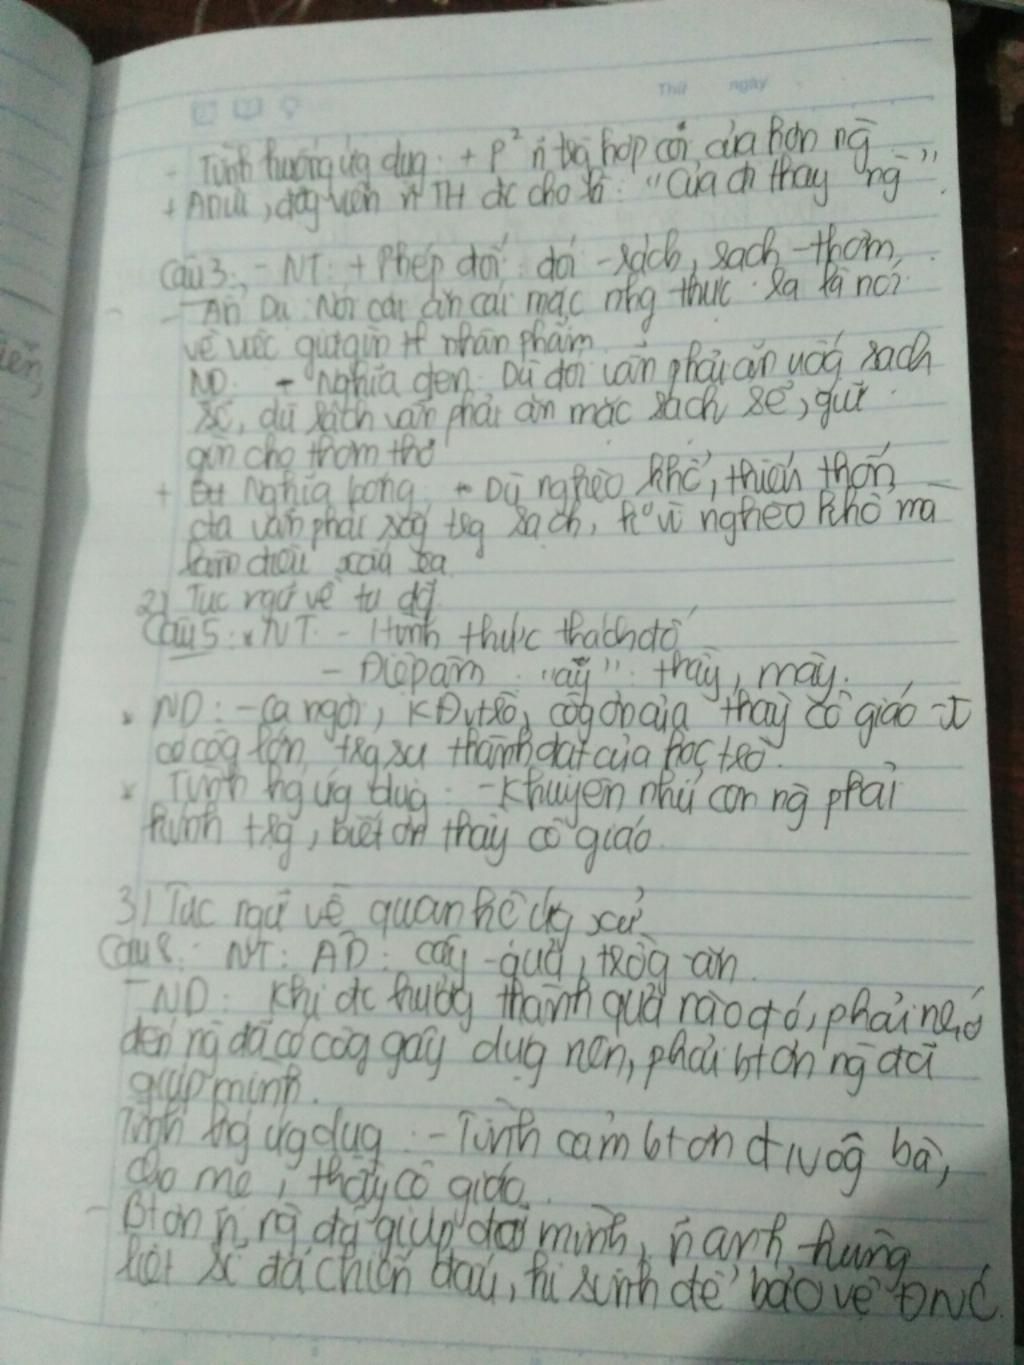 Thứ ngày
- Tình huống ứg dụg: + P² n trg hợp coi của hơn ng
+ An ủi, độg viên n TH đc cho là: "Của đi thay ng".
Câu 3: - NT: + Phép đối: đói - rách, sạch - thơm,
- Ẩn Dụ: Nói cái ăn cái mặc nhg thực ra là nói
về việc giữ gìn nhân phẩm
ND: - Nghĩa đen: Dù đói vẫn phải ăn uốg sạch
sẽ, dù rách vẫn phải ăn mặc sạch sẽ, giữ
gìn cho thơm tho
+ Nghĩa bóng - Dù nghèo khổ, thiếu thốn
ta vẫn phải sốg trg sạch, k vì nghèo khổ mà
làm điều xấu xa
2) Tục ngữ về tu dg
Câu 5: * NT: - Hình thức thách đố
- Điệp âm "ầy": thầy, mày.
* ND: - Ca ngợi, KĐ vtrò, côg ơn của thầy cô giáo
có côg lớn trg sự thành đạt của học trò.
* Tình hg ứg dụg: - Khuyên nhủ con ng phải
kính trg, biết ơn thầy cô giáo
3) Tục ngữ về quan hệ ứg xử
Câu 8: NT: AD: cây - quả, trồg - ăn.
- ND: Khi đc hưởg thành quả nào đó, phải nhớ
đến ng đã có côg gây dựg nên, phải bt ơn ng đã
giúp mình.
Tình hg ứg dụg: - Tình cảm bt ơn đ ôg bà,
cha mẹ, thầy cô giáo.
- Bt ơn n ng đã giúp đỡ mình, n anh hùng
liệt sĩ đã chiến đấu, hi sinh để bảo vệ ĐNC.